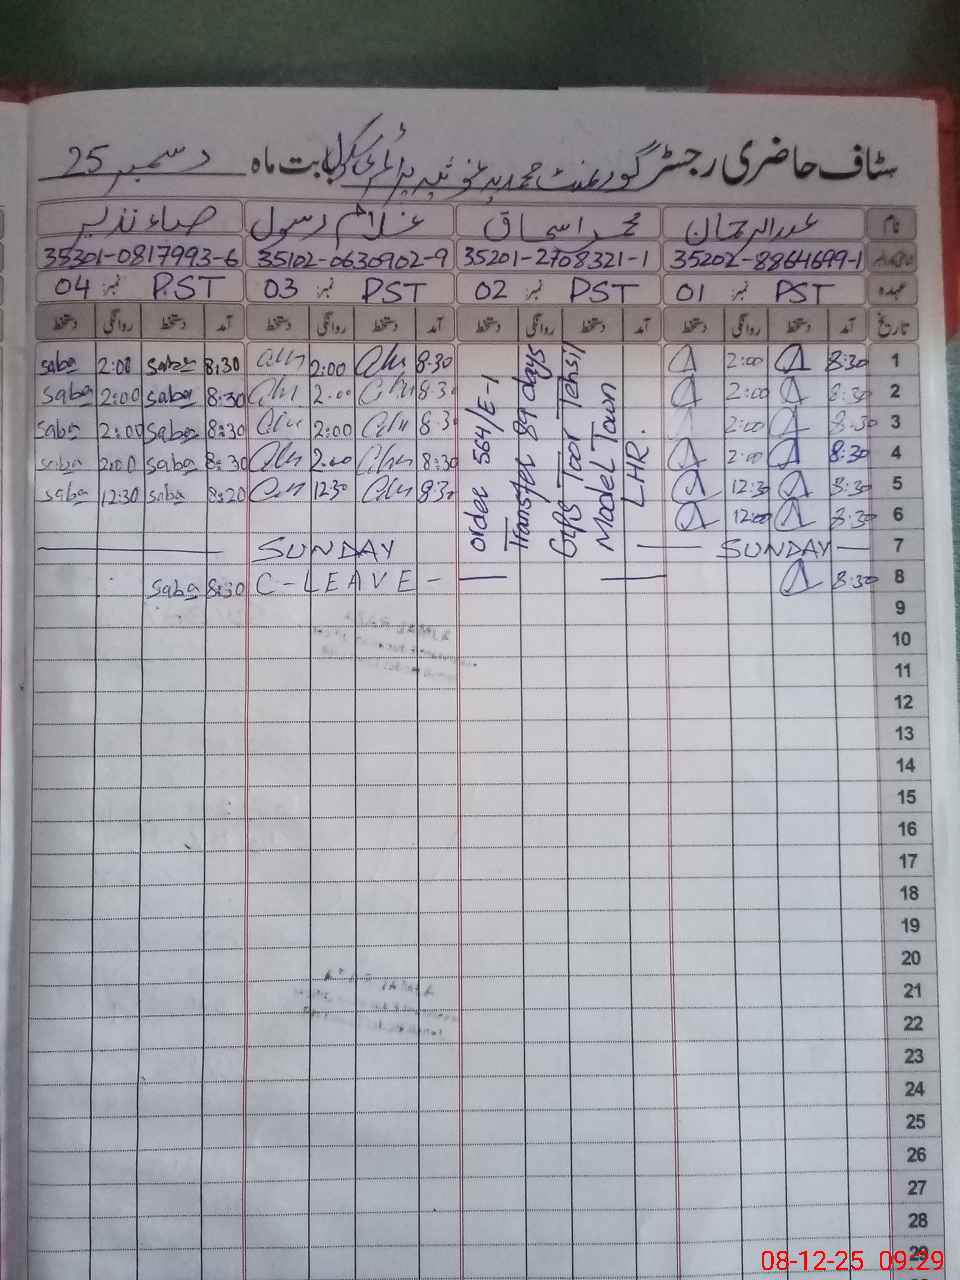 سٹاف حاضری رجسٹر گورنمنٹ محمدیہ غوثیہ پرائمری سکول بابت ماہ دسمبر 25
نام عبدالرحمان محمد اسحاق غلام رسول صباء نذیر
35202-8864699-1 35201-2708321-1 35102-0630902-9 35301-0817993-6
عہدہ PST نمبر 01 PST نمبر 02 PST نمبر 03 P.ST نمبر 04
تاریخ آمد دستخط روانگی دستخط آمد دستخط روانگی دستخط آمد دستخط روانگی دستخط آمد دستخط روانگی دستخط
1 8:30 2:00 8:30 2:00 8:30 saba 2:00 saba
2 8:30 2:00 8:30 2:00 8:30 saba 2:00 saba
3 8:30 2:00 8:30 2:00 8:30 saba 2:00 saba
4 8:30 2:00 8:30 2:00 8:30 saba 2:00 saba
5 8:30 12:30 8:30 1230 8:20 saba 12:30 saba
6 8:30 12:00
7 SUNDAY SUNDAY
8 8:30 C-LEAVE- 8:30 saba
order 564/E-1
Transfer 89 days
G/PS Toor Tehsil
Model Town
LHR.
9
10
11
12
13
14
15
16
17
18
19
20
21
22
23
24
25
26
27
28
29
08-12-25 09:29